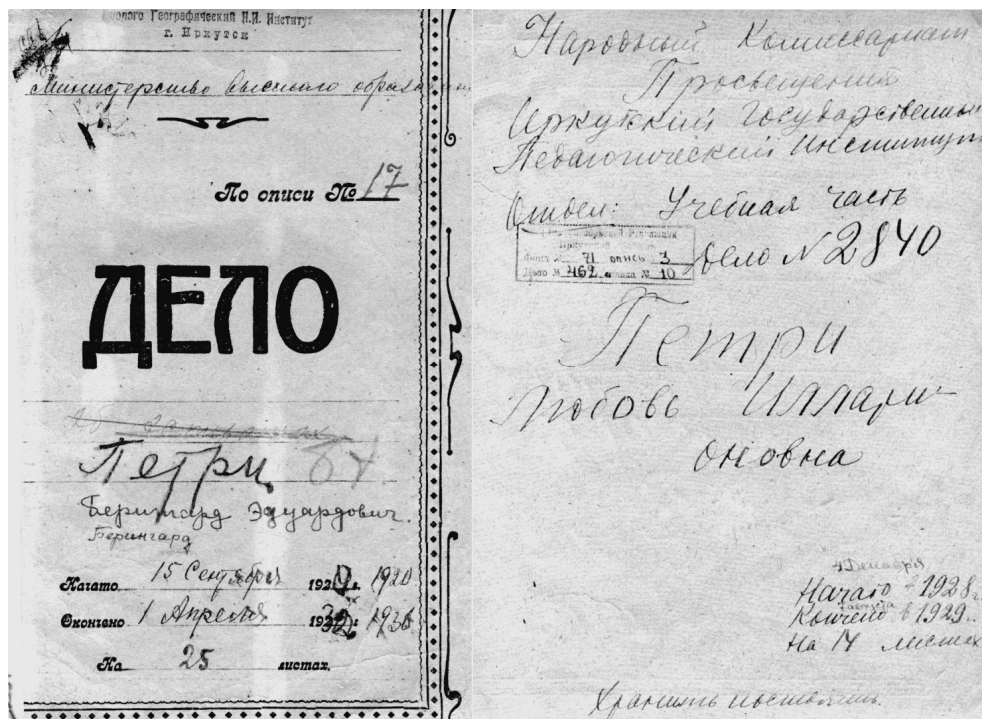 Географический Н.И. Институт
г. Иркутск
Министерство высшего образован
По описи № 17
ДЕЛО
Петри
Бернгард Эдуардович.
Бернгард
Начато 15 Сентября 1920
Окончено 1 Апреля 1936
На 25 листах.
Народный Комиссариат
Просвещения
Иркутский Государственный
Педагогический Институт
Отдел: Учебная часть
Фонд № 71 опись 3
Дело № 462 № 10
Дело № 2840
Петри
Любовь Иллари-
оновна
4 Декабря
Начато в 1928 г.
Кончено в 1929 г.
На 14 листах
Хранить постоянно.